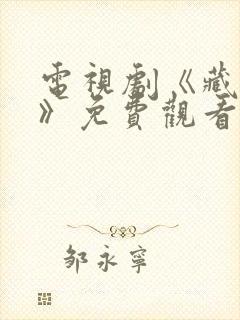 電視劇《藏
》免費觀看
邹永寧